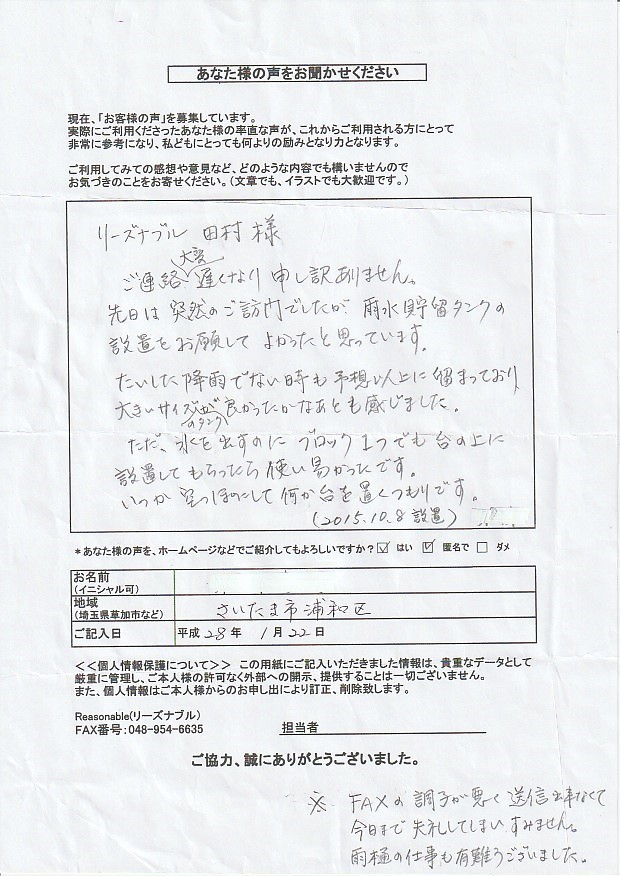 あなた様の声をお聞かせください
現在、「お客様の声」を募集しています。
実際にご利用くださったあなた様の率直な声が、これからご利用される方にとって
非常に参考になり、私どもにとっても何よりの励みとなり力となります。
ご利用してみての感想や意見など、どのような内容でも構いませんので
お気づきのことをお寄せください。(文章でも、イラストでも大歓迎です。)
リーズナブル 田村 様
大変
ご連絡 遅くなり 申し訳ありません。
先日は 突然のご訪問でしたが、雨水貯留タンクの
設置をお願いして よかったと思っています。
たいした降雨でない時も予想以上に留まっており
大きいサイズが良かったかなあとも感じました。
のタンク
ただ、水を出すのに ブロック1つでも台の上に
設置してもらったら使い易かったです。
いつか空っぽにして何か台を置くつもりです。
(2015.10.8 設置)
*あなた様の声を、ホームページなどでご紹介してもよろしいですか?☑ はい ☑ 匿名で □ ダメ
お名前
(イニシャル可)
地域
(埼玉県草加市など) さいたま市浦和区
ご記入日 平成 28 年 1 月 22 日
<<個人情報保護について>> この用紙にご記入いただきました情報は、貴重なデータとして
厳重に管理し、ご本人様の許可なく外部への開示、提供することは一切ございません。
また、個人情報はご本人様からのお申し出により訂正、削除致します。
Reasonable(リーズナブル)
FAX番号:048-954-6635 担当者
ご協力、誠にありがとうございました。
※ FAXの調子が悪く送信出来なくて
今日まで失礼してしまいすみません。
雨樋の仕事も有難うございました。